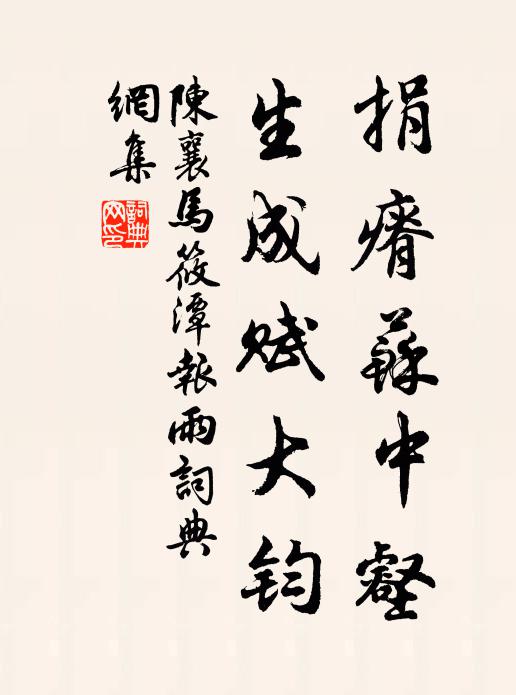 捐瘠蘇中壑
生成赋大钧
陳襄馬筱潭報雨詞典
網集
詞典
网印